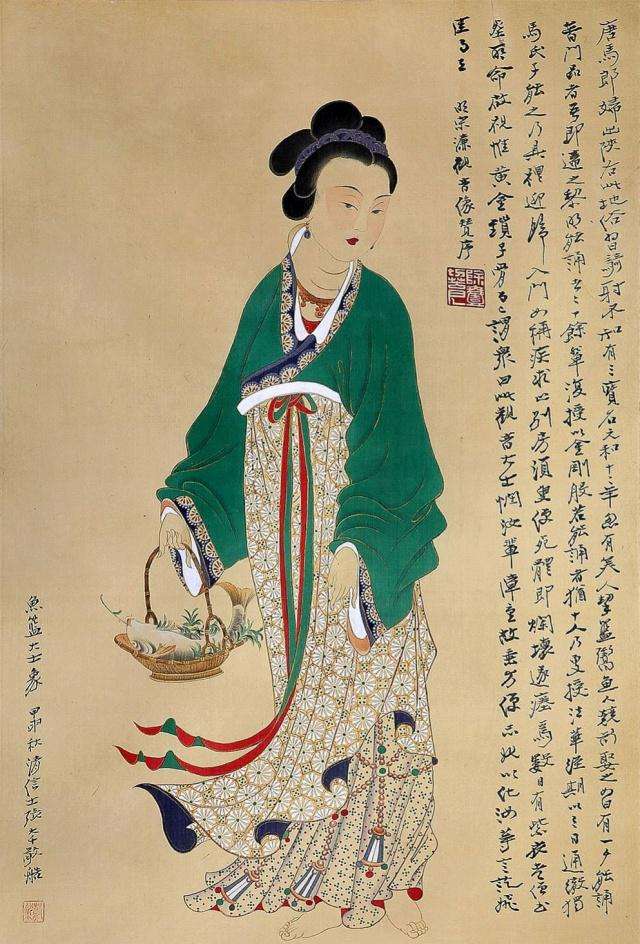 唐馬郎婦出陝右此地俗習騎射不知有三寶名元和十二年忽有美人挈籃鬻魚人競欲娶之曰有一夕能誦
普門品者吾即適之黎明能誦者二十餘輩復授以金剛般若能誦者猶十人乃更授法華經期以三日通徹獨
馬氏子能之乃具禮迎歸入門女稱疾求以別房須臾便死體即爛壞遂瘞焉數日有紫衣老僧至
塋所命啟視惟黃金鎖子骨而已謂眾曰此觀音大士憫汝輩障重故垂方便示現以化汝等言訖飛
空而去
明宋濂觀音像贊序
魚籃大士象 甲申秋清信士張大千敬